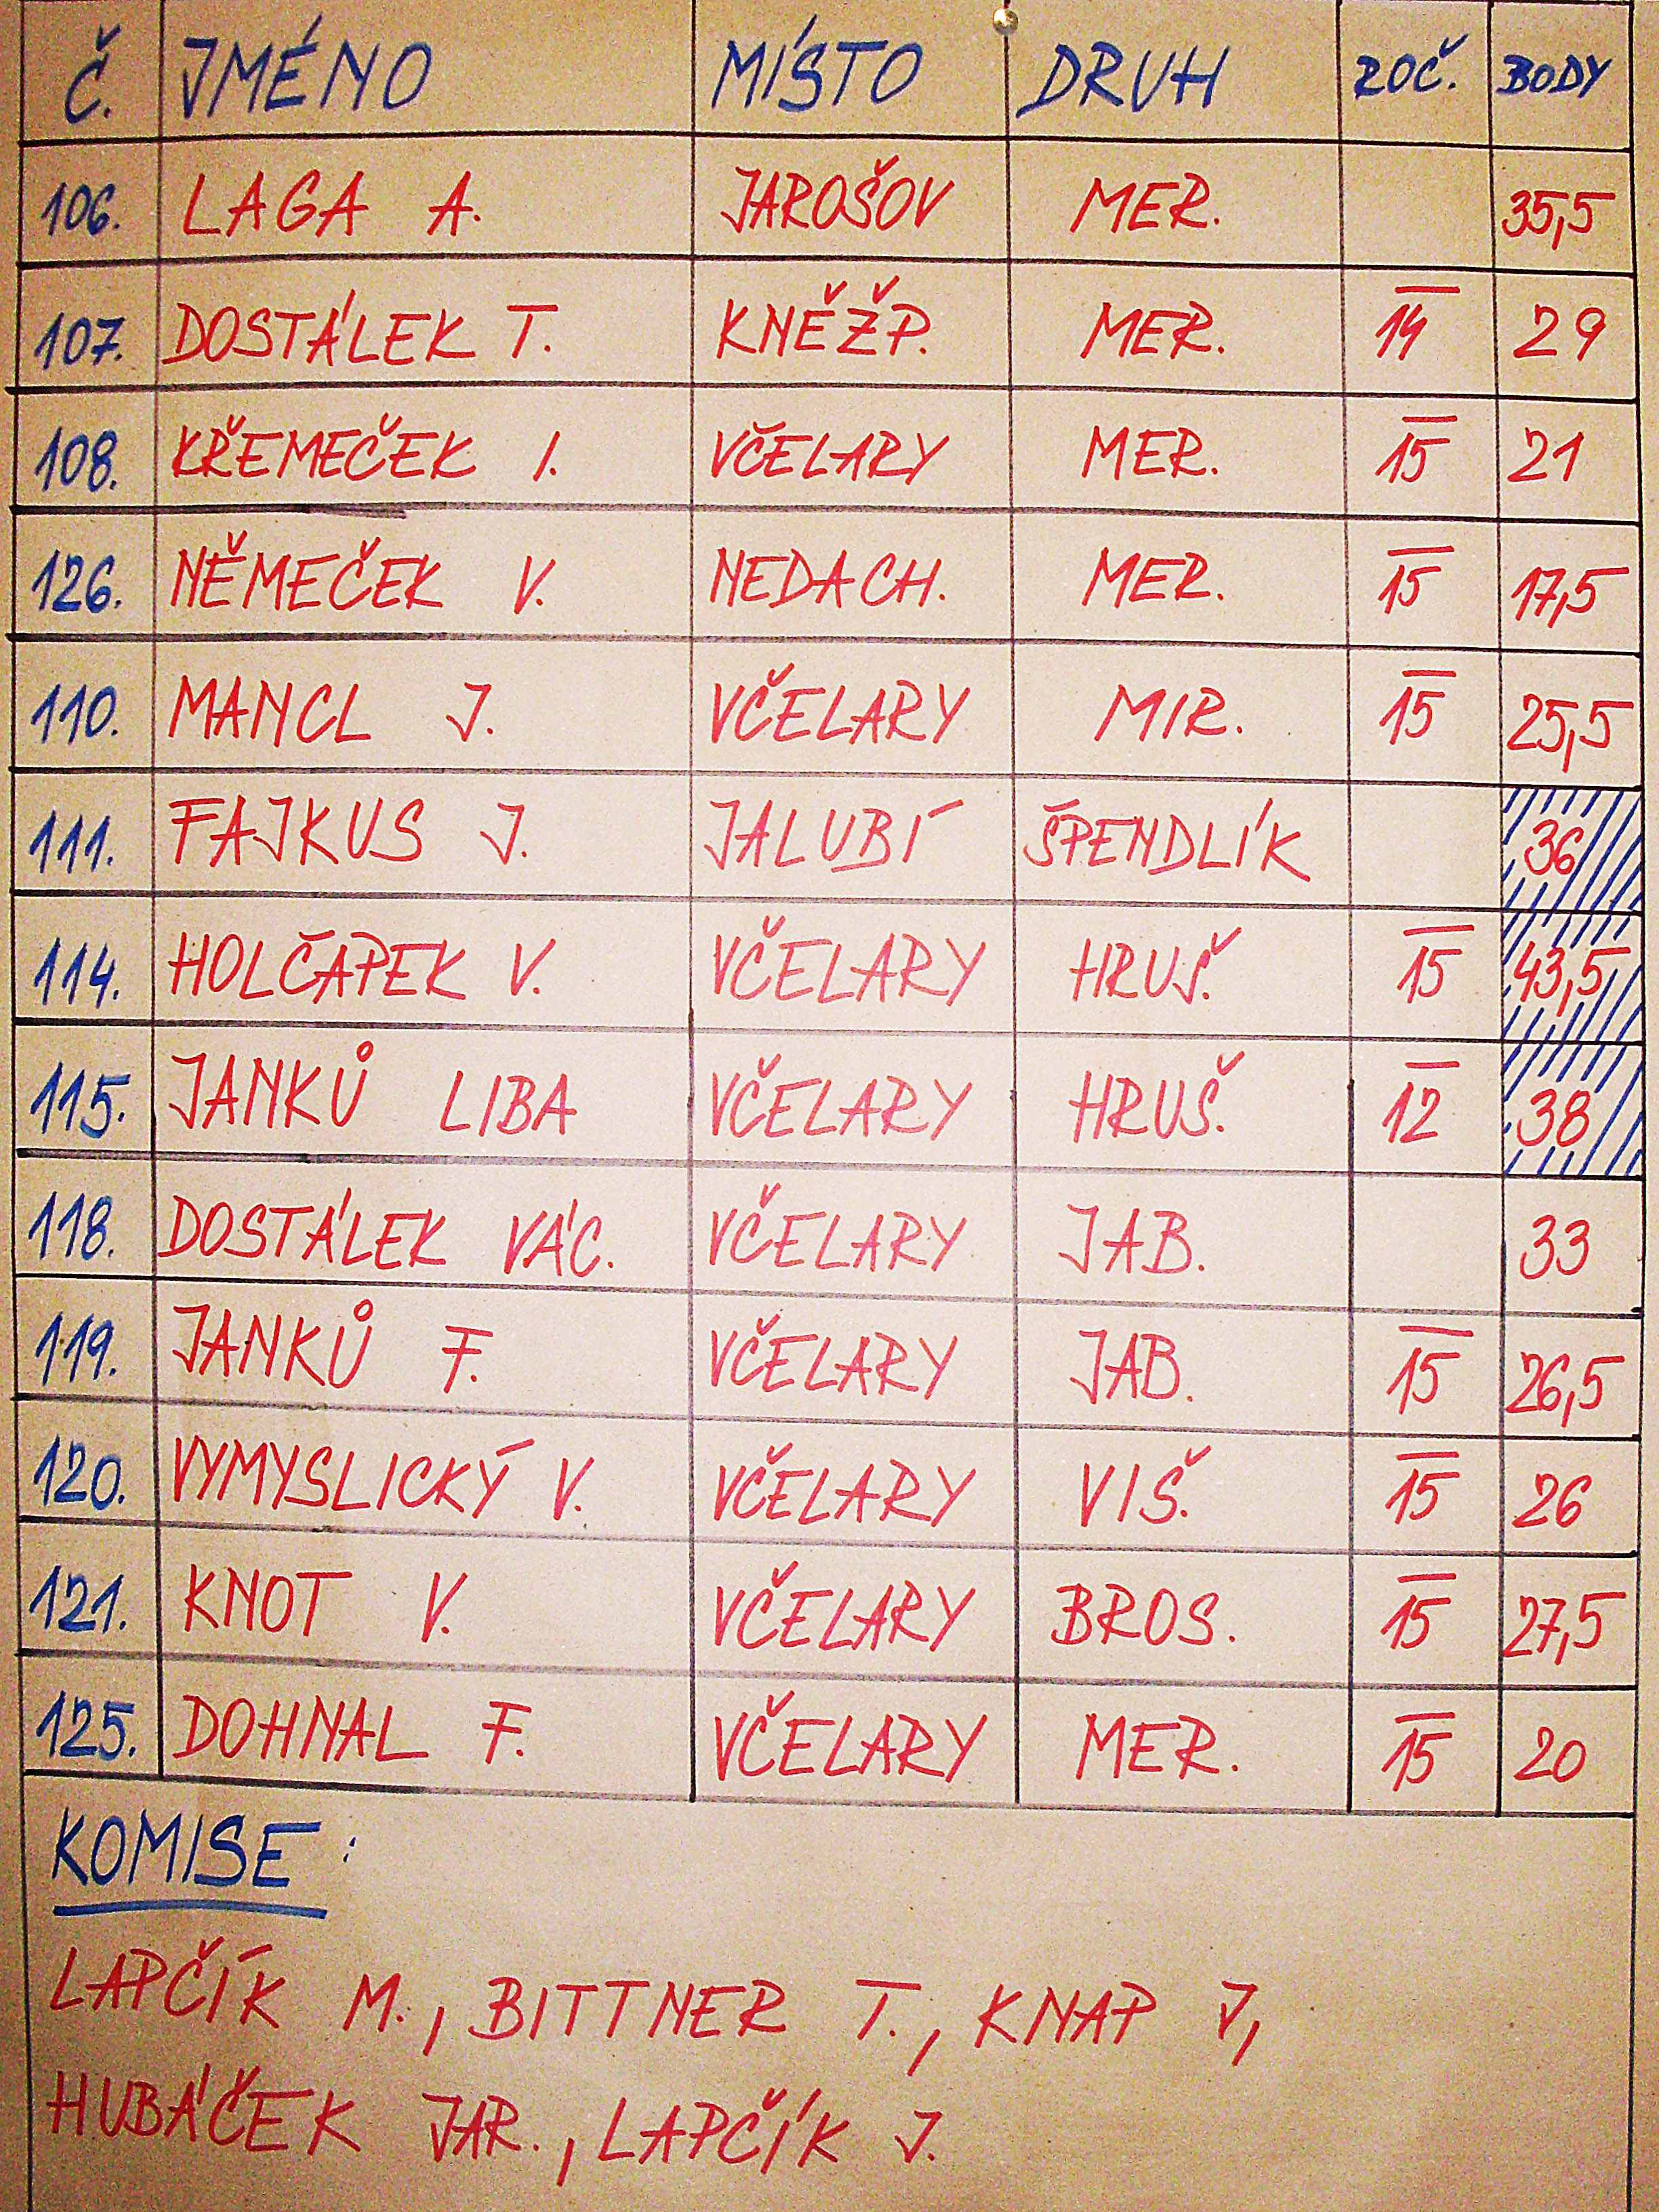 Č. JMÉNO MÍSTO DRUH ROČ. BODY
106. LAGA A. JAROŠOV MER. 35,5
107. DOSTÁLEK T. KNĚŽP. MER. 14 29
108. KŘEMEČEK I. VČELARY MER. 15 21
126. NĚMEČEK V. NEDACH. MER. 15 17,5
110. MANCL J. VČELARY MIR. 15 25,5
111. FAJKUS J. JALUBÍ ŠPENDLÍK 36
114. HOLČAPEK V. VČELARY HRUŠ. 15 43,5
115. JANKŮ LIBA VČELARY HRUŠ. 12 38
118. DOSTÁLEK VÁC. VČELARY JAB. 33
119. JANKŮ F. VČELARY JAB. 15 26,5
120. VYMYSLICKÝ V. VČELARY VIŠ. 15 26
121. KNOT V. VČELARY BROS. 15 27,5
125. DOHNAL F. VČELARY MER. 15 20
KOMISE:
LAPČÍK M., BITTNER T., KNAP J,
HUBÁČEK JAR., LAPČÍK J.